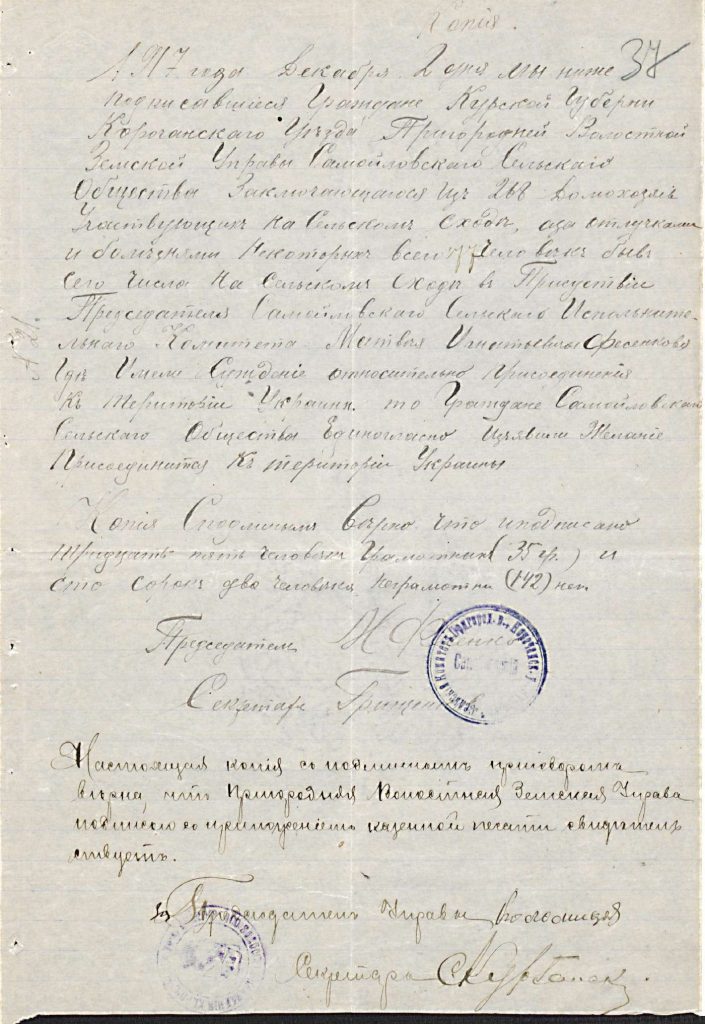 Копія.
37
1917 года Декабря 2 дня мы ниже
подписавшіеся Граждане Курской Губерни
Корочанскаго Уезда Пригородней Волостной
Земской Управы Самойловскаго Сельскаго
Общества Заключающагося изъ 268 домохозяевъ
Участвующихъ на Сельскомъ Сходѣ, за отлучками
и болѣзнями некоторихъ всего 177 Человѣкъ бывъ
сего Числа на Сельскомъ Сходѣ в Присуствіи
Председателя Самойловскаго Сельскаго Исполните-
льнаго Комитета Матвея Игнатьевича Фесенково
Гдѣ Имели Сужденіе относительно присоединения
Къ територіи Украини то Граждане Самойловскаго
Сельскаго Общества Единогласно Изъявили Желаніе
Присоединится Къ територіи Украины
Копія Сподлинымъ Вѣрно что и подписано
тридцать пять человѣкъ Грамотних (35 гр.) и
сто сорокъ два человѣка неграмотни (142) нег.
Председатель
Секретарь Грищенко
Настоящая копія съ подлиннымъ приговоромъ
вѣрна, что Пригородняя Волостная Земская Управа
подписью съ приложеніемъ казенной печати свидѣтель
ствуетъ.
За Председателя Управы
Секретарь